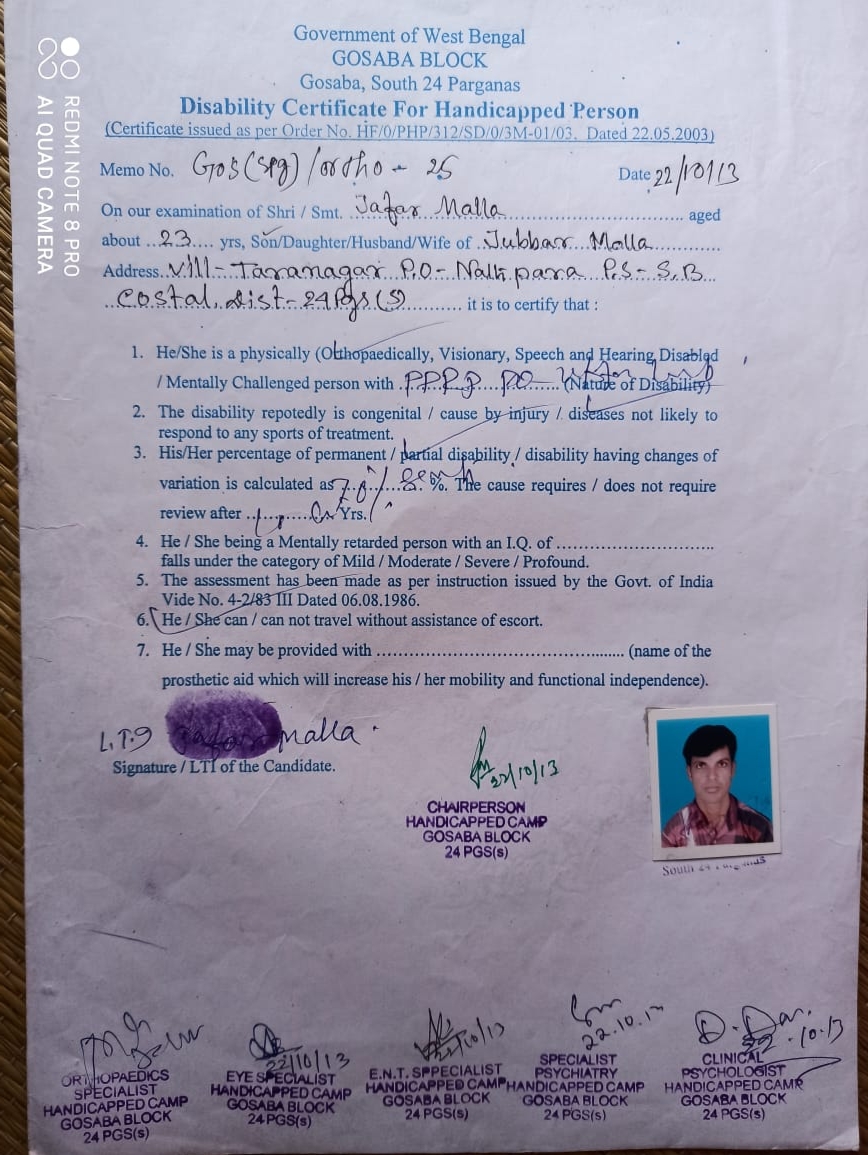 Government of West Bengal
GOSABA BLOCK
Gosaba, South 24 Parganas
Disability Certificate For Handicapped Person
(Certificate issued as per Order No. HF/0/PHP/312/SD/0/3M-01/03, Dated 22.05.2003)
Memo No. Gos(spg)/ortho - 25 Date 22/10/13
On our examination of Shri / Smt. Jafar Malla aged
about 23 yrs, Son/Daughter/Husband/Wife of Jubbar Molla
Address Vill- Taranagar P.O- P.S- S.B
Costal, Dist- 24 Pgs (S) it is to certify that :
1. He/She is a physically (Othopaedically, Visionary, Speech and Hearing Disabled
/ Mentally Challenged person with PPRP (Nature of Disability)
2. The disability repotedly is congenital / cause by injury / diseases not likely to
respond to any sports of treatment.
3. His/Her percentage of permanent / partial disability / disability having changes of
variation is calculated as 70% %. The cause requires / does not require
review after Yrs.
4. He / She being a Mentally retarded person with an I.Q. of
falls under the category of Mild / Moderate / Severe / Profound.
5. The assessment has been made as per instruction issued by the Govt. of India
Vide No. 4-2/83 III Dated 06.08.1986.
6. He / She can / can not travel without assistance of escort.
7. He / She may be provided with (name of the
prosthetic aid which will increase his / her mobility and functional independence).
Jafar Malla
Signature / LTI of the Candidate.
22/10/13
CHAIRPERSON
HANDICAPPED CAMP
GOSABA BLOCK
24 PGS(s)
South 24
ORTHOPAEDICS
SPECIALIST
HANDICAPPED CAMP
GOSABA BLOCK
24 PGS(s)
22/10/13
EYE SPECIALIST
HANDICAPPED CAMP
GOSABA BLOCK
24 PGS(s)
22/10/13
E.N.T. SPPECIALIST
HANDICAPPED CAMP
GOSABA BLOCK
24 PGS(s)
22.10.13
SPECIALIST
PSYCHIATRY
HANDICAPPED CAMP
GOSABA BLOCK
24 PGS(s)
22.10.13
CLINICAL
PSYCHOLOGIST
HANDICAPPED CAMP
GOSABA BLOCK
24 PGS(s)
REDMI NOTE 8 PRO
AI QUAD CAMERA